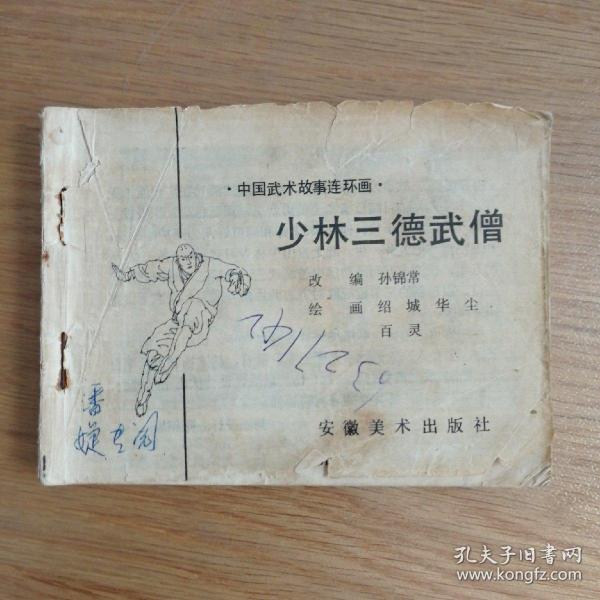 ·中国武术故事连环画·
少林三德武僧
改 编 孙锦常
绘 画 绍城 华尘
百灵
安徽美术出版社
孔夫子旧书网
www.kongfz.com